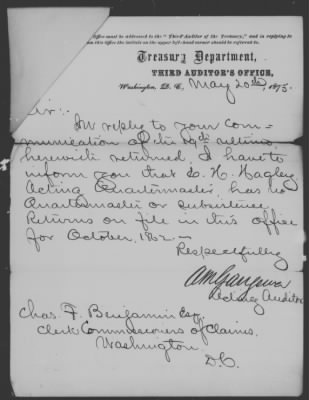 Office must be addressed to the "Third Auditor of the Treasury," and in replying to
this Office the initials on the upper left-hand corner should be referred to.
Treasury Department,
THIRD AUDITOR'S OFFICE,
Washington, D. C., May 20th, 1875.
Sir:-
In reply to your com=
munication of the 19th ultimo,
herewith returned, I have to
inform you that S. H. Hagley
Acting Quartermaster, has no
Quartermaster or Subsistence
Returns on file in this Office
for October, 1862.-
Respectfully
A M Gangewer
Acting Auditor
Chas. F. Benjamin Esq.,
Clerk Commissioners of Claims,
Washington
D.C.